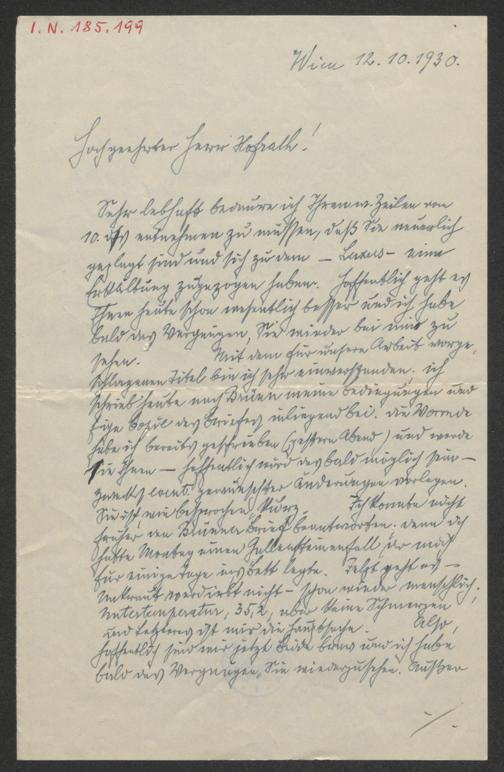 I.N. 185.199
Wien 12.10.1930.
Hochgeehrter Herr Hofrath!
Sehr lebhaft bedaure ich Ihren w. Zeilen vom
10. ds entnehmen zu müssen, daß Sie neuerlich
geplagt sind und sich zu dem – Luxus – eine
Erkältung zugezogen haben. Hoffentlich geht es
Ihnen heute schon wesentlich besser und ich habe
bald das Vergnügen, Sie wieder bei mir zu
sehen. Mit dem für unsere Arbeit vorge-
schlagenen Titel bin ich sehr einverstanden. ich
schrieb heute nach Brünn meine Bedingungen und
füge des Briefes inliegend bei. die Vorrede
habe ich bereits geschrieben (gestern Abend) und werde
sie Ihnen – hoffentlich wird das bald möglich sein –
zwecks event. gewünschter Änderungen vorlegen.
Sie ist wie besprochen kurz. Ich konnte nicht
früher den Brünner Brief beantworten. denn ich
hatte Montag einen Gallensteinanfall der mich
für einige Tage ins Bett legte. Jetzt geht es –
Unkraut verdirbt nicht – schon wieder menschlich;
Untertemperatur, 35,2, aber keine Schmerzen
und letzteres ist mir die Hauptsache. Also,
hoffentlich sind wir jetzt beide brav und ich habe
bald das Vergnügen, Sie wiederzusehen. Außer
./.